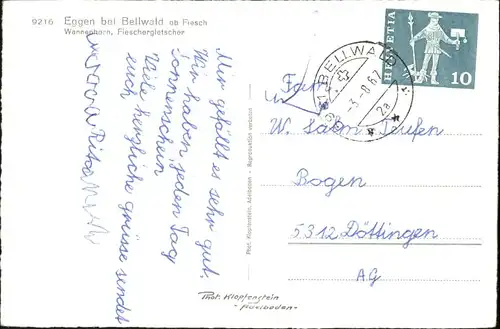 9216 Eggen bei Bellwald ob Fiesch
Wannenhorn, Fieschergletscher
Mir gefällt es sehr gut.
Wir haben jeden Tag
Sonnenschein
Viele herzliche grüsse sendet
euch
Rita
Phot. Klopfenstein, Adelboden - Reproduktion verboten
Phot. Klopfenstein
- Adelboden -
BELLWALD
-3.-8.67
2a
HELVETIA
10
Fam.
W. Salm-Teufen
Bogen
5312 Döttingen
AG